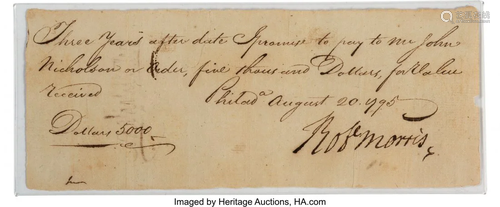 Three Years after date I promise to pay to Mr John
Nicholson or Order, five thousand Dollars, for Value
received
Philada August 20. 1795
Dollars 5000
Robt Morris
Imaged by Heritage Auctions, HA.com